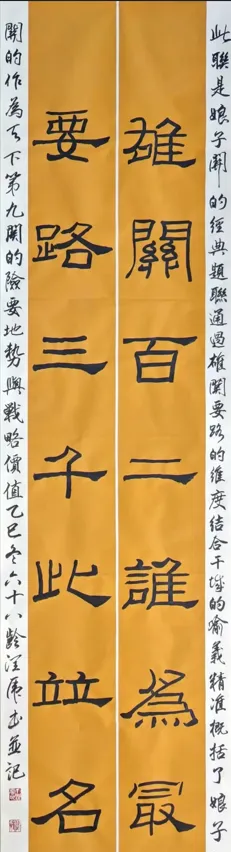 此聯是娘子關的經典題聯通過雄關要路的維度結合干城的喻義精准概括了娘子
雄關百二誰爲冣
要路三千此竝名
關的作為天下第九關的險要地勢與戰略價值乙巳冬六十八齡汪虎書並記